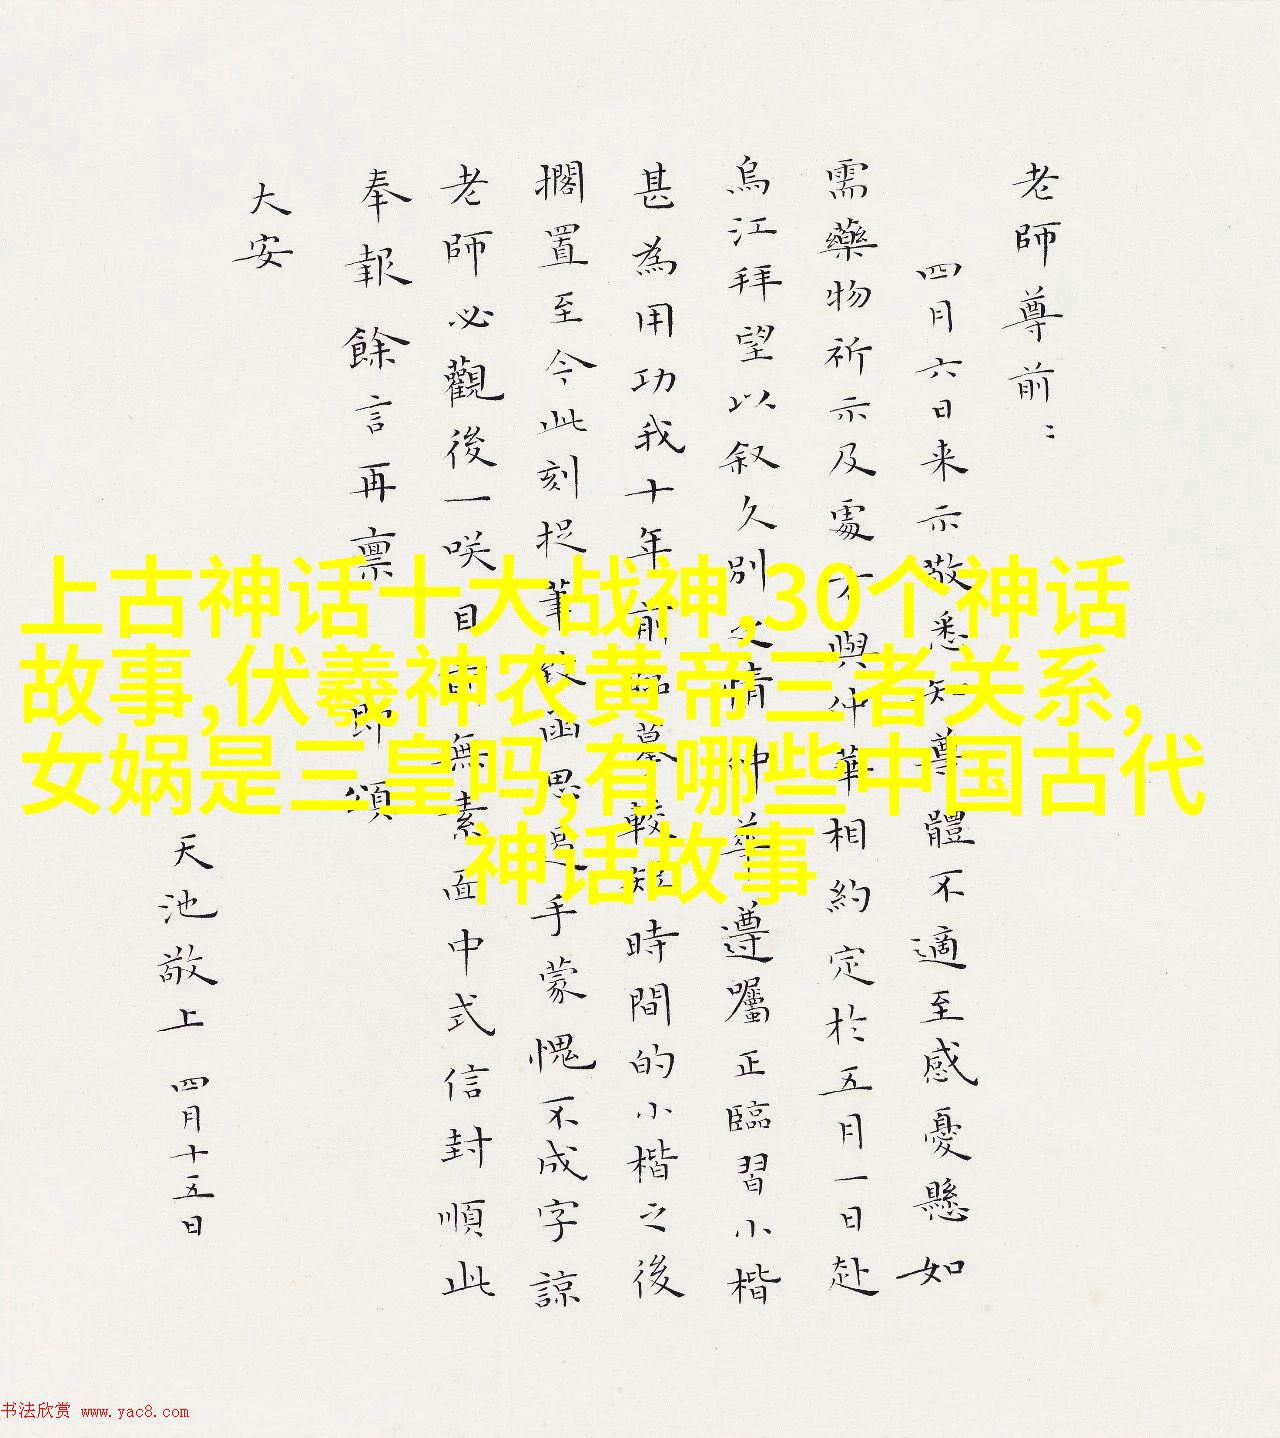 老師尊前：
四月六日来示敬悉知尊體不適至感憂懸如
需藥物祈示及處方與仲華相約定於五月一日赴
烏江拜望以叙久別之情仲華遵囑正臨習小楷
甚為用功我十年前臨摹較短時間的小楷之後
擱置至今此刻捉筆致函思手蒙愧不成字諒
老師必觀後一咲目前無素面中式信封順此
奉報餘言再禀即頌
大安
天池敬上 四月十五日
上古神话十大战神,30个神话
故事,伏羲神农黄帝三者关系,
女娲是三皇吗,有哪些中国古代
神话故事
书法欣赏 www.yac8.com